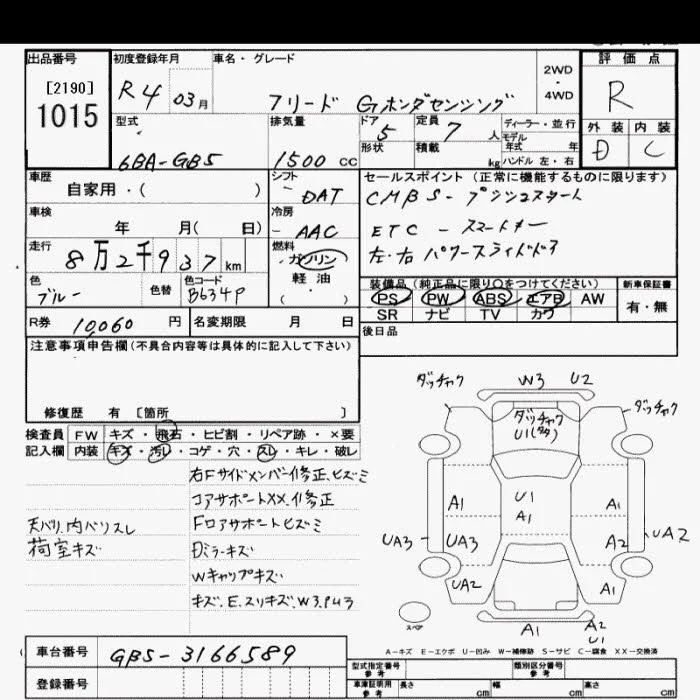 出品番号
[2190]
1015
初度登録年月
R4 03月
車名・グレード
フリード Gホンダセンシング
2WD
・
4WD
評価点
R
外装 内装
D C
型式
6BA-GB5
排気量
1500 cc
ドア
5
形状
定員
7 人
積載
kg
ディーラー・並行
モデル
年式 年
ハンドル 左・右
車歴
自家用・( )
シフト
DAT
セールスポイント (正常に機能するものに限ります)
CMBS- プッシュスタート
ETC - スマートキー
左・右パワースライドドア
車検
年 月( 日)
冷房
AAC
走行
8万2千937km
燃料
ガソリン
軽油
( ・ )
色
ブルー
色替
色コード
B634P
装備品(純正品に限り○をつけてください)
PS PW ABS エアB AW
SR ナビ TV カワ
新車保証書
有・無
R券 10,060 円
名変期限 月 日
後日品
注意事項申告欄(不具合内容等は具体的に記入して下さい)
修復歴 有 [箇所 ]
検査員
記入欄
FW キズ・飛石・ヒビ割・リペア跡・×要
内装 キズ・汚レ・コゲ・穴・スレ・キレ・破レ
右Fサイドメンバー修正、ヒズミ
コアサポートXX、修正
天バリ、内バリスレ
Fロアサポートヒズミ
荷室キズ
Dミラーキズ
Wキャップキズ
キズ、E、スリキズ、W3、PU3
ダッチャク
W3 U2
ダッチャク
ダッチャク
U1
A1
U1
A1
A1
UA3
UA3
A2
UA2
UA2
A1
スペア
A1
A2
U1
A-キズ E-エクボ U-凹み W-補修跡 S-サビ C-腐食 XX-交換済
車台番号
GB5-3166589
登録番号
型式指定番号
参考
類別区分番号
参考
車庫証明用
参考
長さ cm
幅 cm
高さ cm